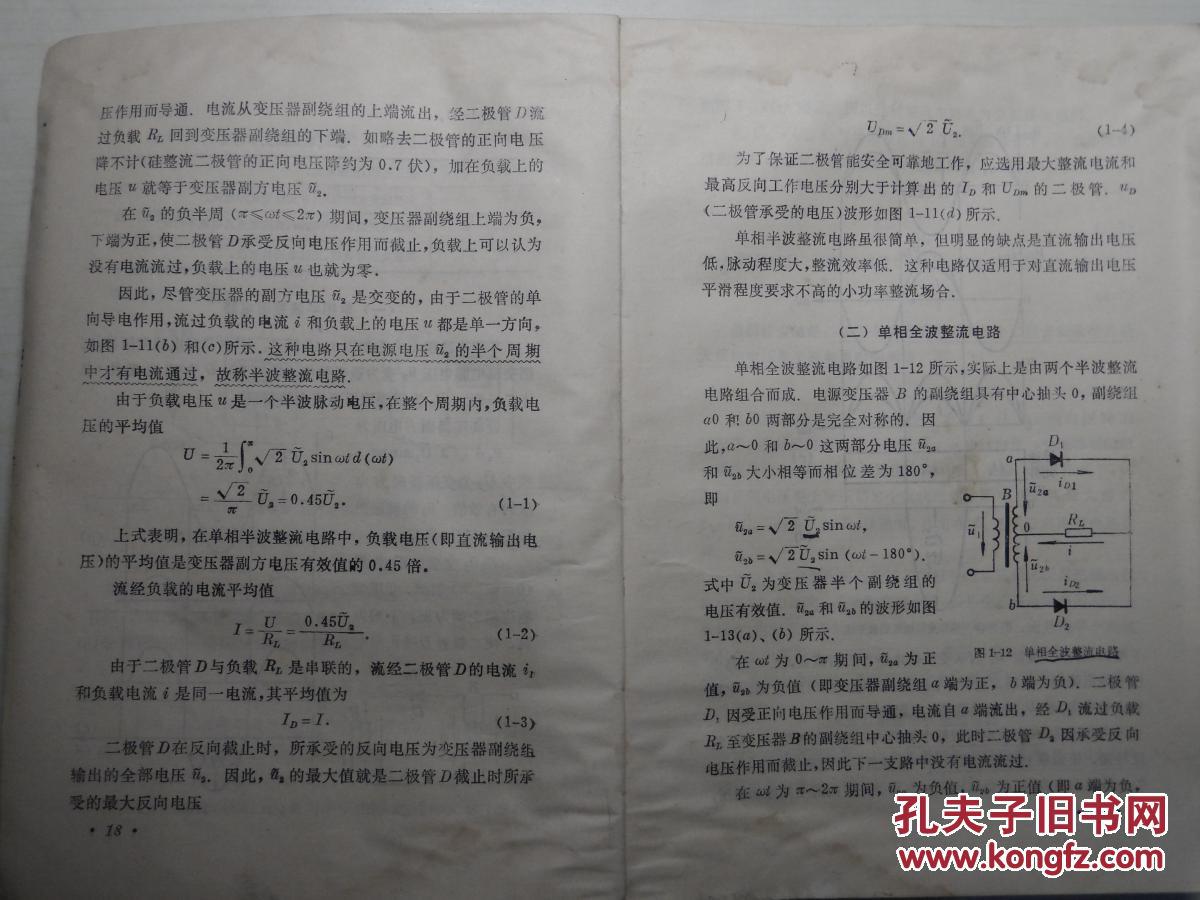 压作用而导通．电流从变压器副绕组的上端流出，经二极管D流
过负载 R_L 回到变压器副绕组的下端．如略去二极管的正向电压
降不计(硅整流二极管的正向电压降约为 0.7 伏)，加在负载上的
电压 u 就等于变压器副方电压 ũ₂．
在 ũ₂ 的负半周 (π≤ωt≤2π) 期间，变压器副绕组上端为负，
下端为正，使二极管D承受反向电压作用而截止，负载上可以认为
没有电流流过，负载上的电压 u 也就为零．
因此，尽管变压器的副方电压 ũ₂ 是交变的，由于二极管的单
向导电作用，流过负载的电流 i 和负载上的电压 u 都是单一方向，
如图 1-11(b) 和(c)所示．这种电路只在电源电压 ũ₂ 的半个周期
中才有电流通过，故称半波整流电路．
由于负载电压 u 是一个半波脉动电压，在整个周期内，负载电
压的平均值
U = 1/2π ∫₀^π √2 Ũ₂ sin ωt d(ωt)
= √2/π Ũ₂ = 0.45Ũ₂． (1-1)
上式表明，在单相半波整流电路中，负载电压(即直流输出电
压)的平均值是变压器副方电压有效值的 0.45 倍．
流经负载的电流平均值
I = U/R_L = 0.45Ũ₂/R_L． (1-2)
由于二极管D与负载 R_L 是串联的，流经二极管D的电流
和负载电流 i 是同一电流，其平均值为
I_D = I． (1-3)
二极管D在反向截止时，所承受的反向电压为变压器副绕组
输出的全部电压 ũ₂．因此，ũ₂ 的最大值就是二极管D截止时所承
受的最大反向电压
· 18 ·
U_Dm = √2 Ũ₂． (1-4)
为了保证二极管能安全可靠地工作，应选用最大整流电流和
最高反向工作电压分别大于计算出的 I_D 和 U_Dm 的二极管．u_D
(二极管承受的电压)波形如图 1-11(d)所示．
单相半波整流电路虽很简单，但明显的缺点是直流输出电压
低，脉动程度大，整流效率低．这种电路仅适用于对直流输出电压
平滑程度要求不高的小功率整流场合．
(二) 单相全波整流电路
单相全波整流电路如图 1-12 所示，实际上是由两个半波整流
电路组合而成．电源变压器 B 的副绕组具有中心抽头 0，副绕组
a0 和 b0 两部分是完全对称的．因
此，a～0 和 b～0 这两部分电压 ũ₂ₐ
和 ũ₂b 大小相等而相位差为 180°，
即
ũ₂ₐ = √2 Ũ₂ sin ωt，
ũ₂b = √2 Ũ₂ sin (ωt－180°)．
式中 Ũ₂ 为变压器半个副绕组的
电压有效值．ũ₂ₐ 和 ũ₂b 的波形如图
1-13(a)、(b) 所示．
D₁
a
i_D1
B
ũ₂ₐ
ũ₁
0
R_L
i
ũ₂b
i_D2
b
D₂
图 1-12 单相全波整流电路
在 ωt 为 0～π 期间，ũ₂ₐ 为正
值，ũ₂b 为负值 (即变压器副绕组 a 端为正，b 端为负)．二极管
D₁ 因受正向电压作用而导通，电流自 a 端流出，经 D₁ 流过负载
R_L 至变压器B的副绕组中心抽头 0，此时二极管 D₂ 因承受反向
电压作用而截止，因此下一支路中没有电流流过．
在 ωt 为 π～2π 期间，ũ₂ₐ 为负值，ũ₂b 为正值(即 a 端为负，
孔夫子旧书网
www.kongfz.com